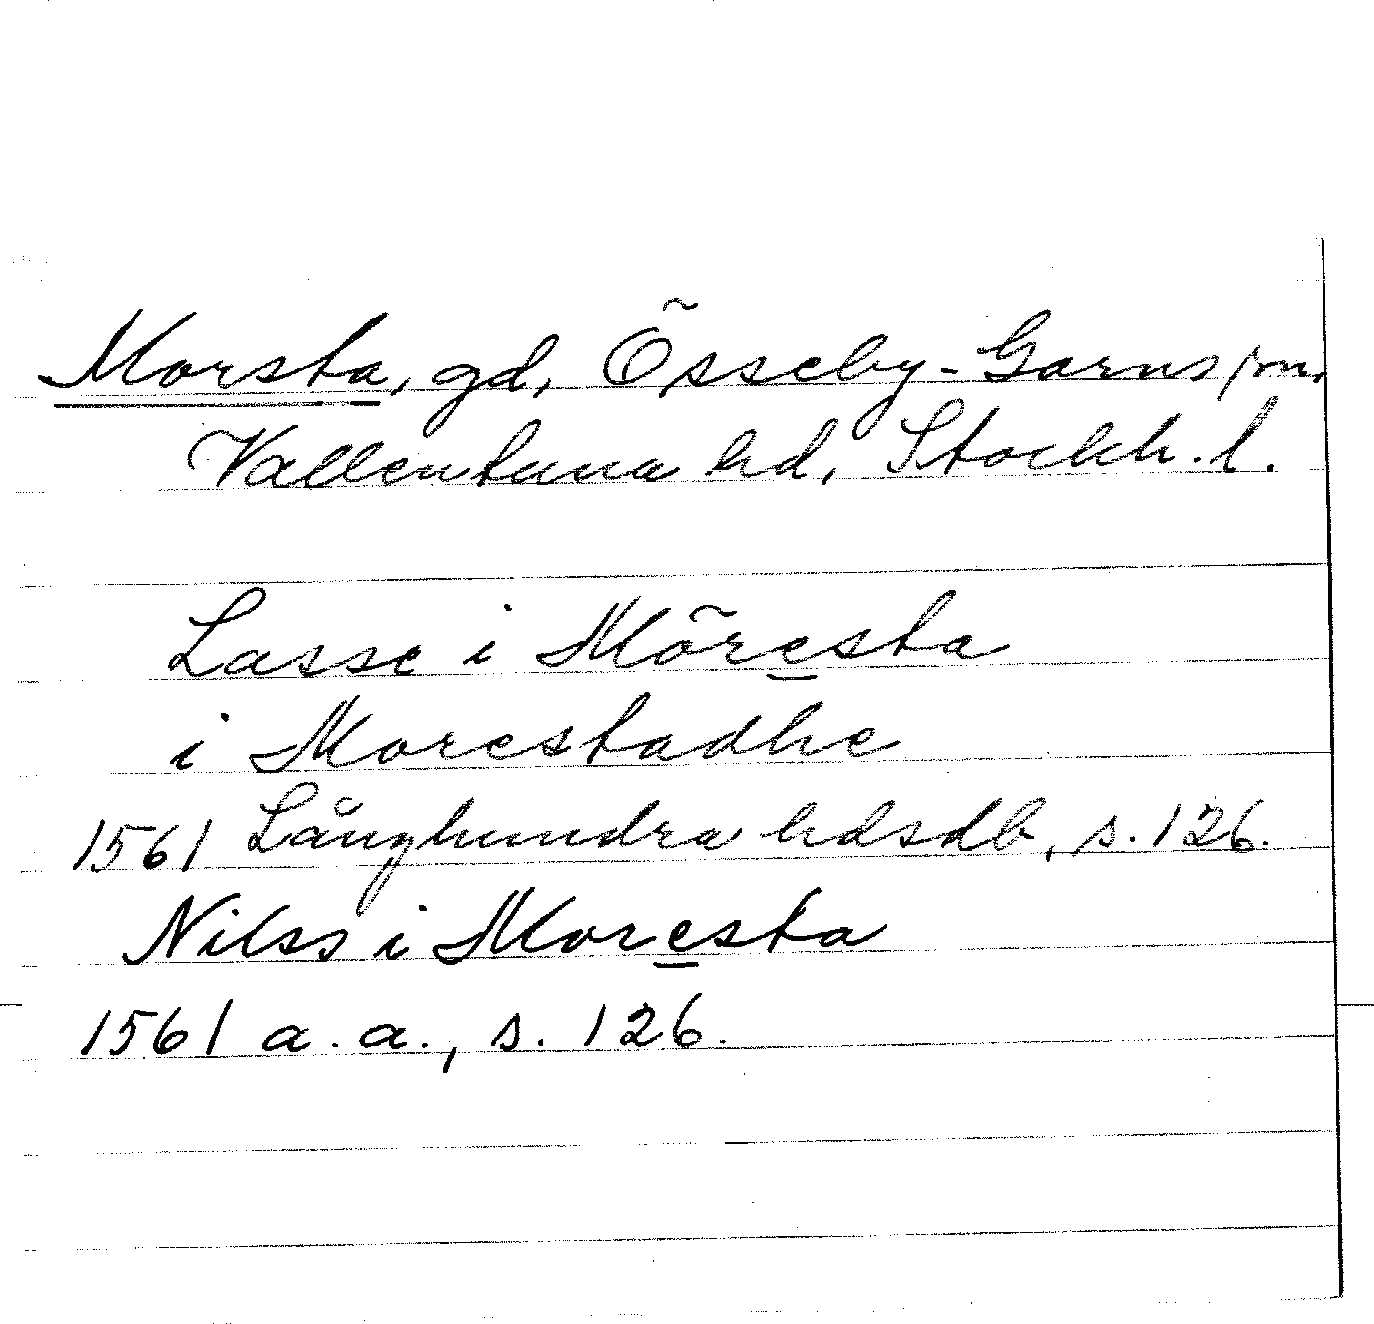 Morsta, gd, Össeby-Garns sn,
Vallentuna hd, Stockh. l.
Lasse i Möresta
i Morestadhe
1561 Långhundra hdsdb, s. 126.
Nilss i Moresta
1561 a. a., s. 126.